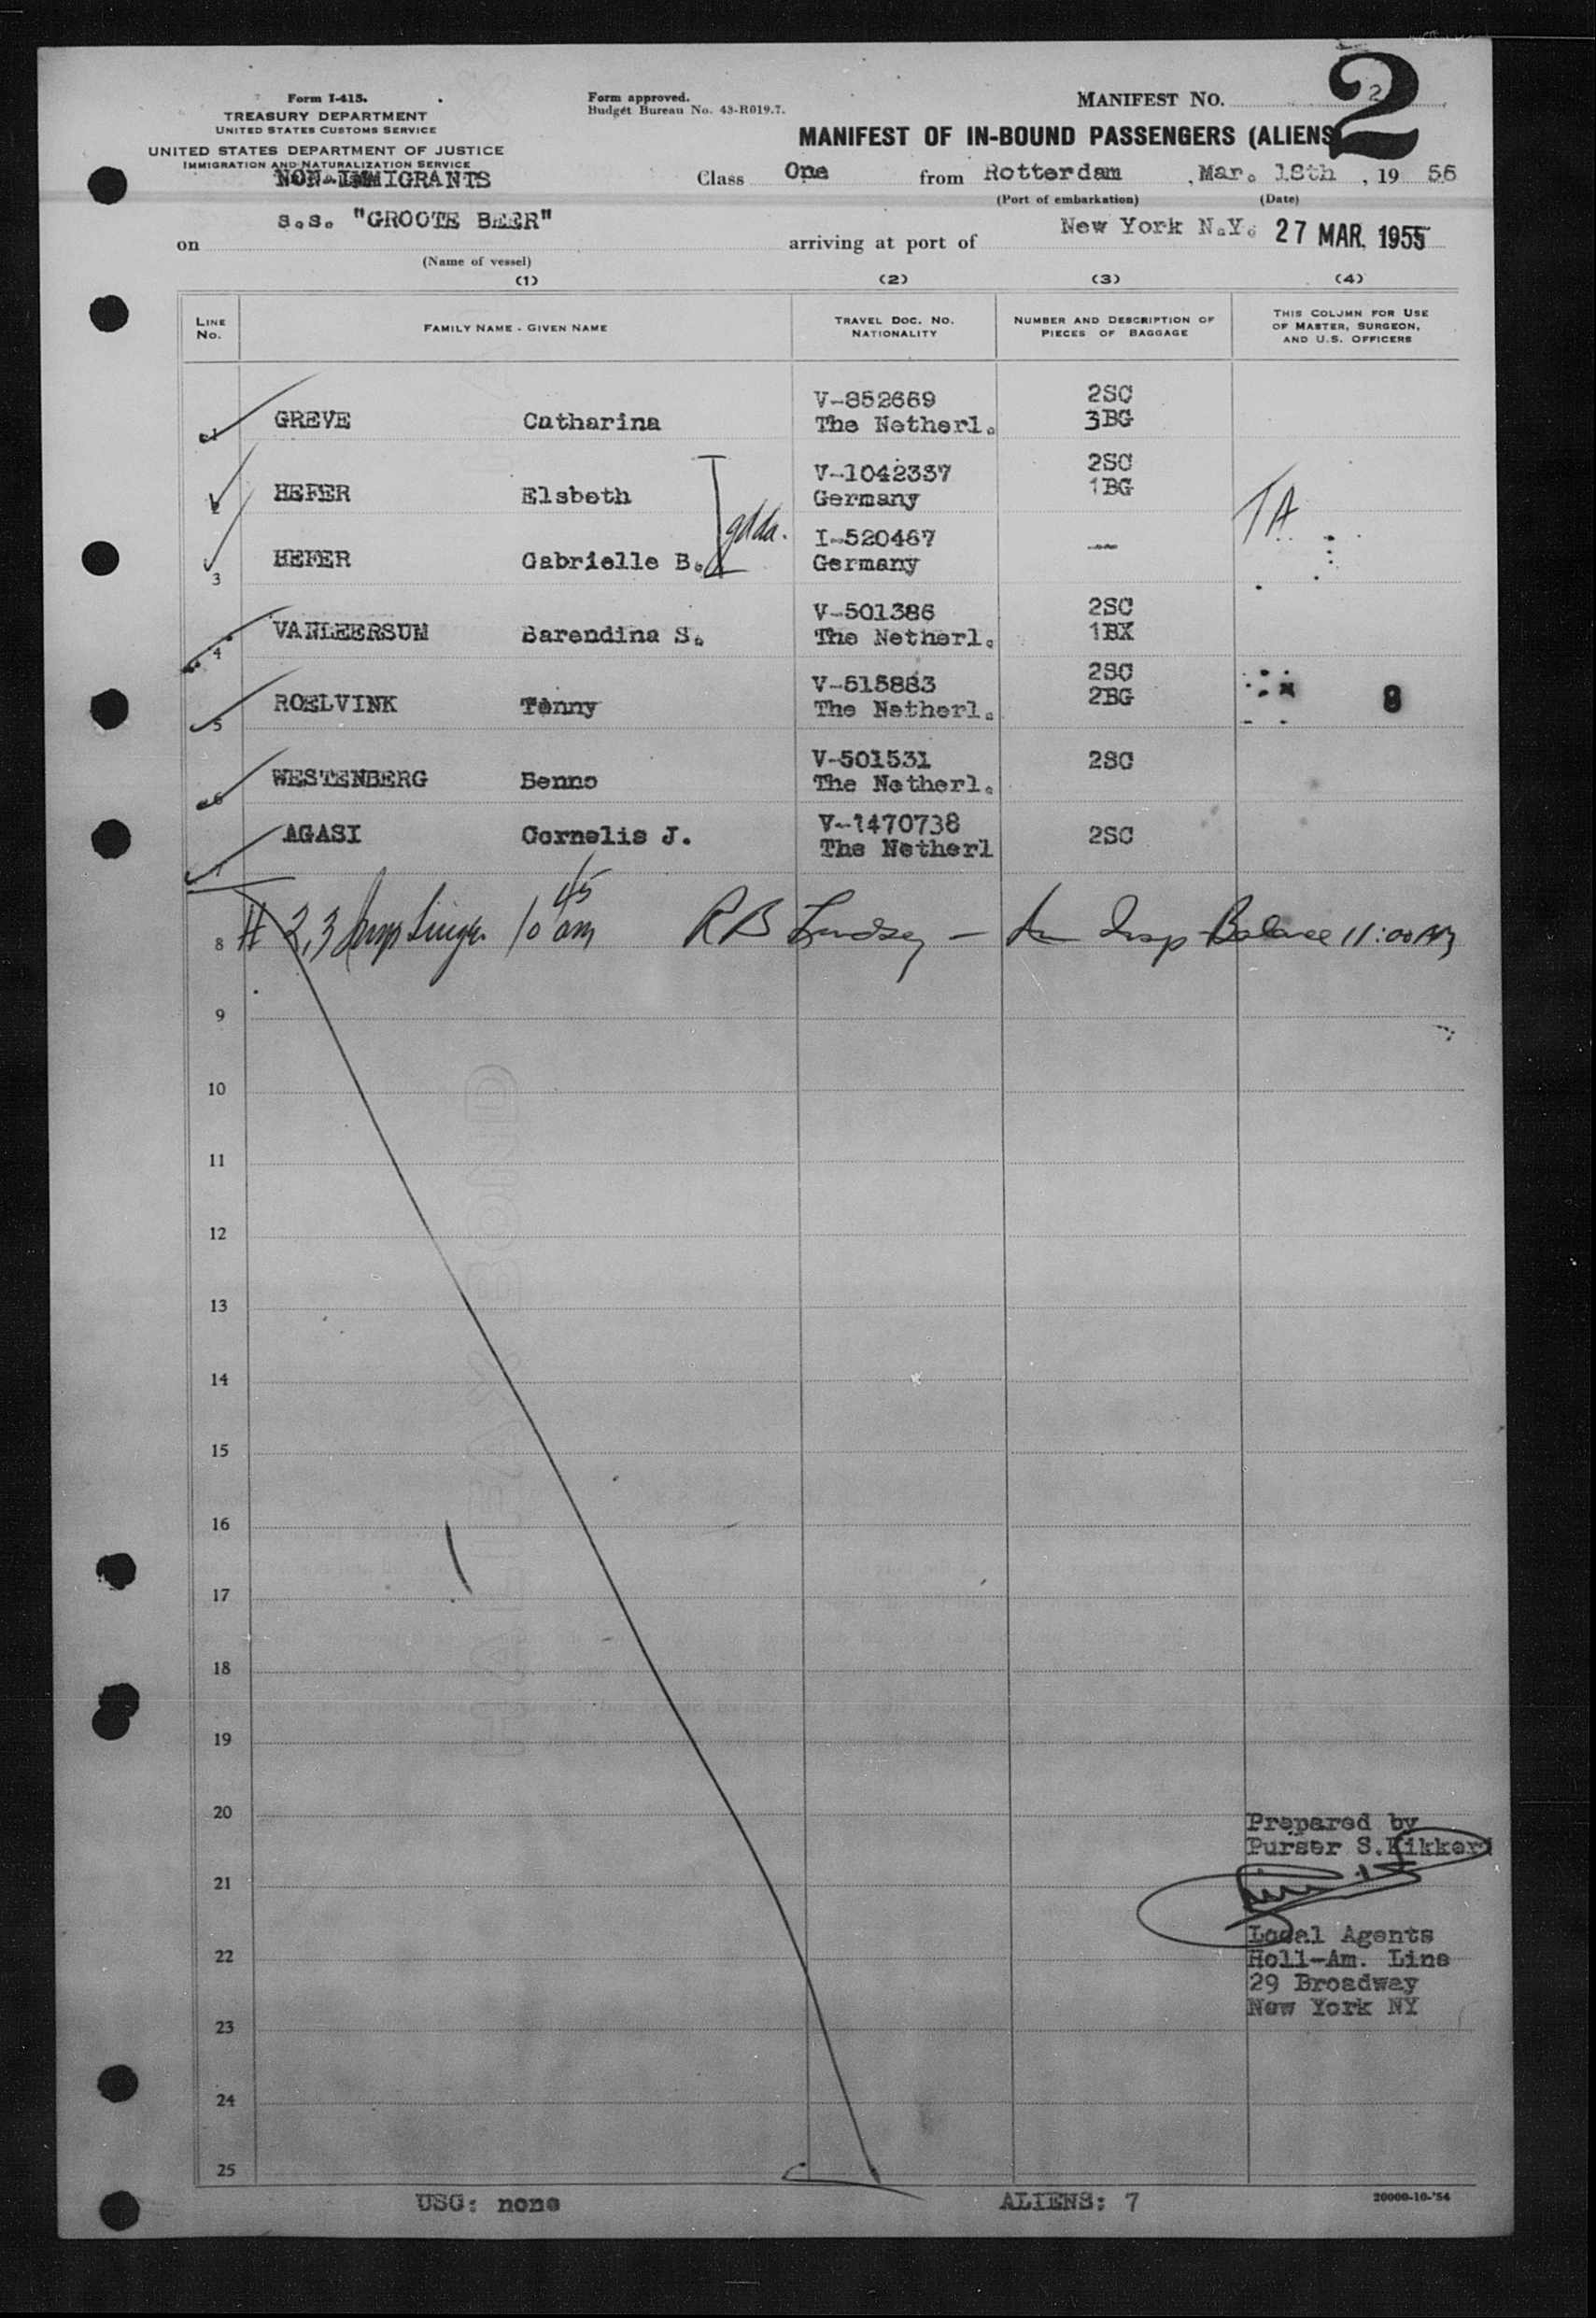 Form I-415.
TREASURY DEPARTMENT
UNITED STATES CUSTOMS SERVICE
UNITED STATES DEPARTMENT OF JUSTICE
IMMIGRATION AND NATURALIZATION SERVICE
NON-IMMIGRANTS
Form approved.
Budget Bureau No. 43-R019.7.
MANIFEST NO. 2
2
MANIFEST OF IN-BOUND PASSENGERS (ALIENS
Class One from Rotterdam , Mar. 18th , 19 56
(Port of embarkation) (Date)
on s.s. "GROOTE BEER" arriving at port of New York N.Y. 27 MAR. 1955
(Name of vessel)
(1) (2) (3) (4)
LINE NO. FAMILY NAME - GIVEN NAME TRAVEL DOC. NO. NATIONALITY NUMBER AND DESCRIPTION OF PIECES OF BAGGAGE THIS COLUMN FOR USE OF MASTER, SURGEON, AND U.S. OFFICERS
1 GREVE Catharina V-852669 The Netherl. 2SC 3BG
2 HEFER Elsbeth V-1042337 Germany 2SC 1BG TA
3 HEFER Gabrielle B. I-520467 Germany --
4 VANLEERSUM Barendina S. V-501386 The Netherl. 2SC 1BX
5 ROELVINK Tenny V-515883 The Netherl. 2SC 2BG 8
6 WESTENBERG Benno V-501531 The Netherl. 2SC
7 AGASI Cornelis J. V-1470738 The Netherl 2SC
8 # 2,3 10 45 am R B Lindsey - Insp Balance 11:00 AM
9
10
11
12
13
14
15
16
17
18
19
20
21
22
23
24
25
Prepared by
Purser S.Kikkert
Local Agents
Holl-Am. Line
29 Broadway
New York NY
USC: none ALIENS: 7 20000-10-'54
HALIFAX BOND